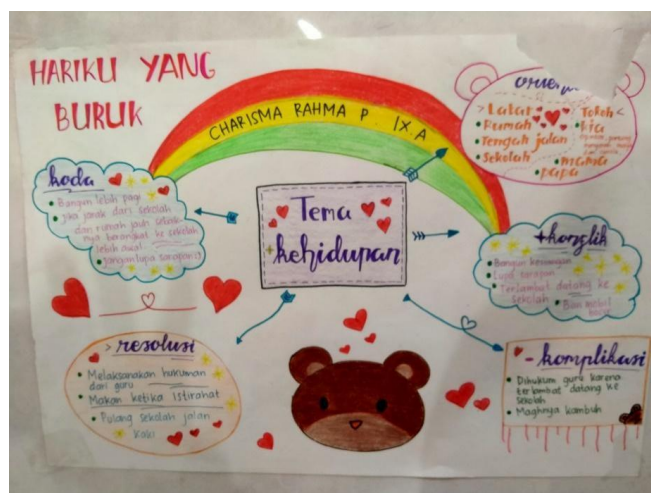 HARIKU YANG
BURUK
CHARISMA RAHMA P IX.A
Tema
kehidupan
> Latar
• Rumah
• Tengah jalan
• Sekolah
Tokoh <
• kia
• mama
• papa
koda
• Bangun lebih pagi
• Jika jarak dari sekolah
dan rumah jauh
berangkat ke sekolah
lebih awal
• Jangan lupa sarapan
+ konflik
• Bangun kesiangan
• Lupa sarapan
• Terlambat datang ke
sekolah
• Ban mobil
bocor
> resolusi
• Melaksanakan hukuman
dari guru
• Makan ketika istirahat
• Pulang sekolah jalan
kaki
- komplikasi
• Dihukum guru karena
terlambat datang ke
sekolah
• Maghnya kambuh